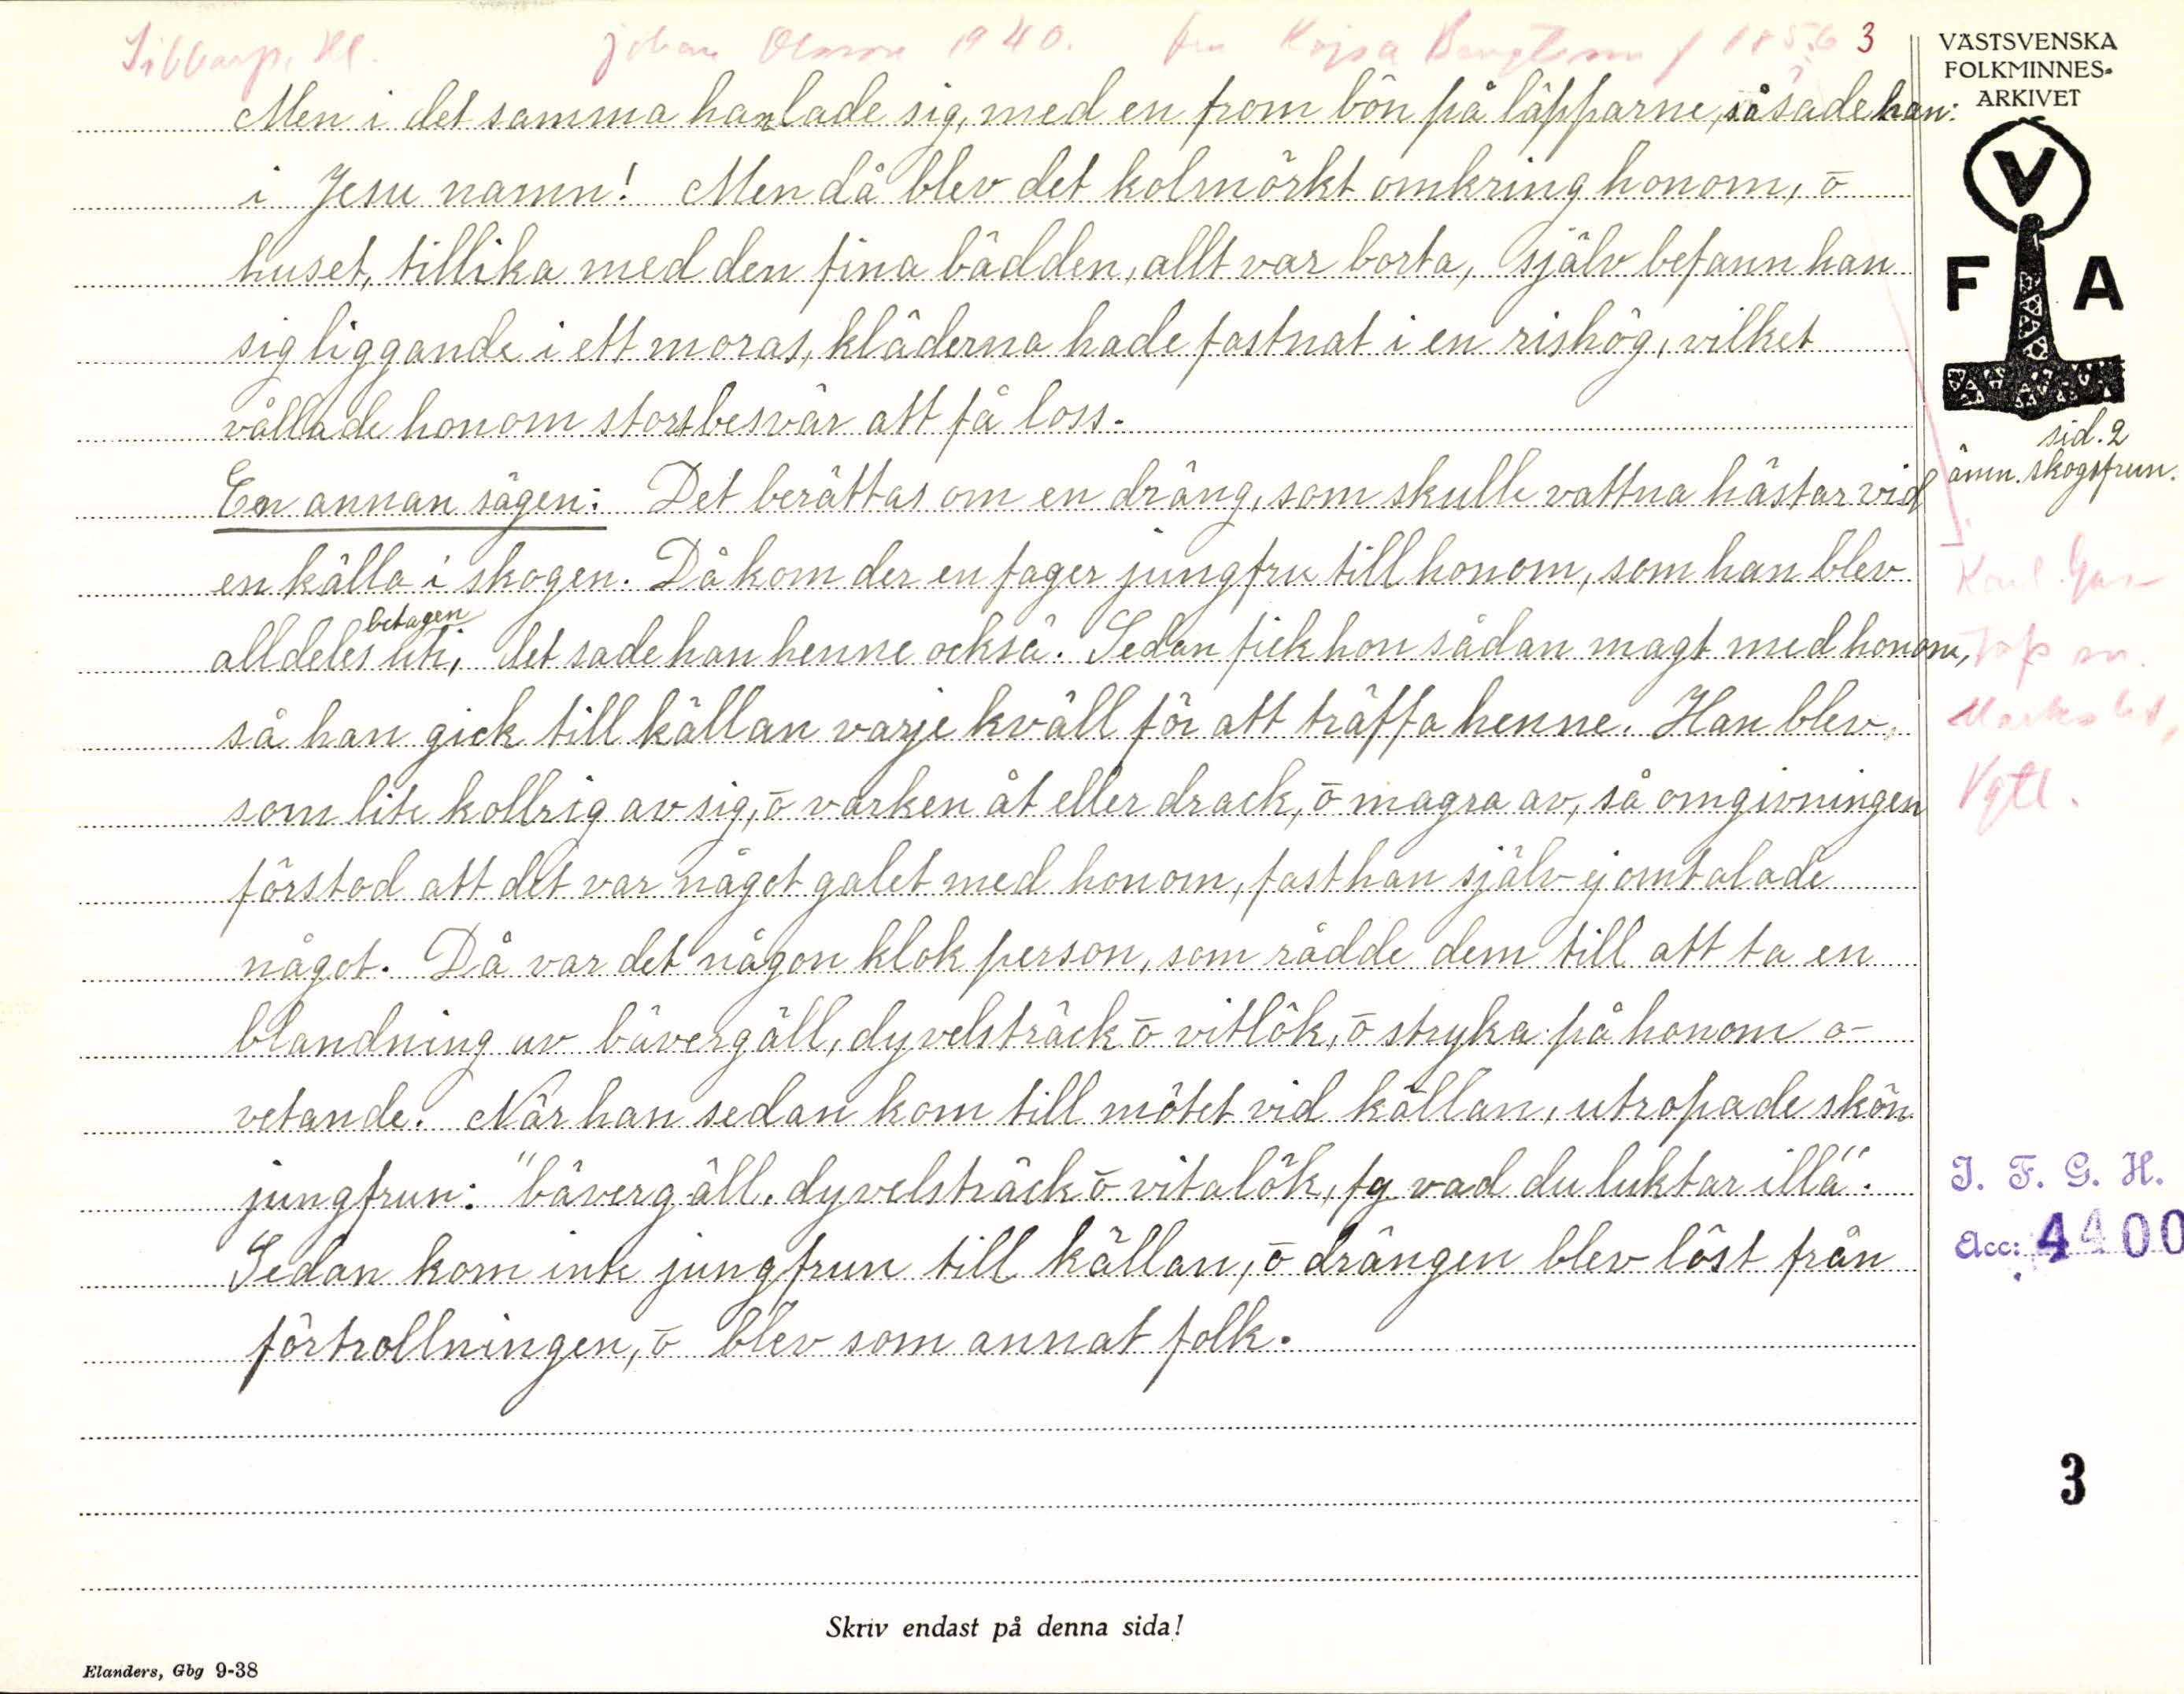 Sibbarp, Hl. Johan Olsson 1940. fru Kajsa f 1856 3
VÄSTSVENSKA
FOLKMINNES-
ARKIVET
V
F A
Men i det samma han lade sig, med en from bön på läpparne, så sade han:
i Jesu namn! Men då blev det kolmörkt omkring honom, ō
huset, tillika med den fina bädden, allt var borta, själv befann han
sig liggande i ett moras, kläderna hade fastnat i en rishög, vilket
vållade honom stort besvär att få loss.
sid. 2
ämn. skogsfrun.
En annan sägen: Det berättas om en dräng, som skulle vattna hästar vid
en källa i skogen. Då kom der en fager jungfru till honom, som han blev
alldeles betagen uti, det sade han henne också. Sedan fick hon sådan magt med honom,
så han gick till källan varje kväll för att träffa henne. Han blev,
som lite kollrig av sig, ō varken åt eller drack, ō magra av, så omgivningen
förstod att det var något galet med honom, fast han själv ej omtalade
något. Då var det någon klok person, som rådde dem till att ta en
blandning av bävergäll, dyvelsträck ō vitlök, ō stryka på honom o-
vetande. När han sedan kom till mötet vid källan, utropade skön
jungfrun: "bävergäll, dyvelsträck ō vitalök, fy vad du luktar illa".
Sedan kom inte jungfrun till källan, ō drängen blev löst från
förtrollningen, ō blev som annat folk.
Vgtl.
I. F. G. H.
Acc: 4400
3
Skriv endast på denna sida!
Elanders, Gbg 9-38